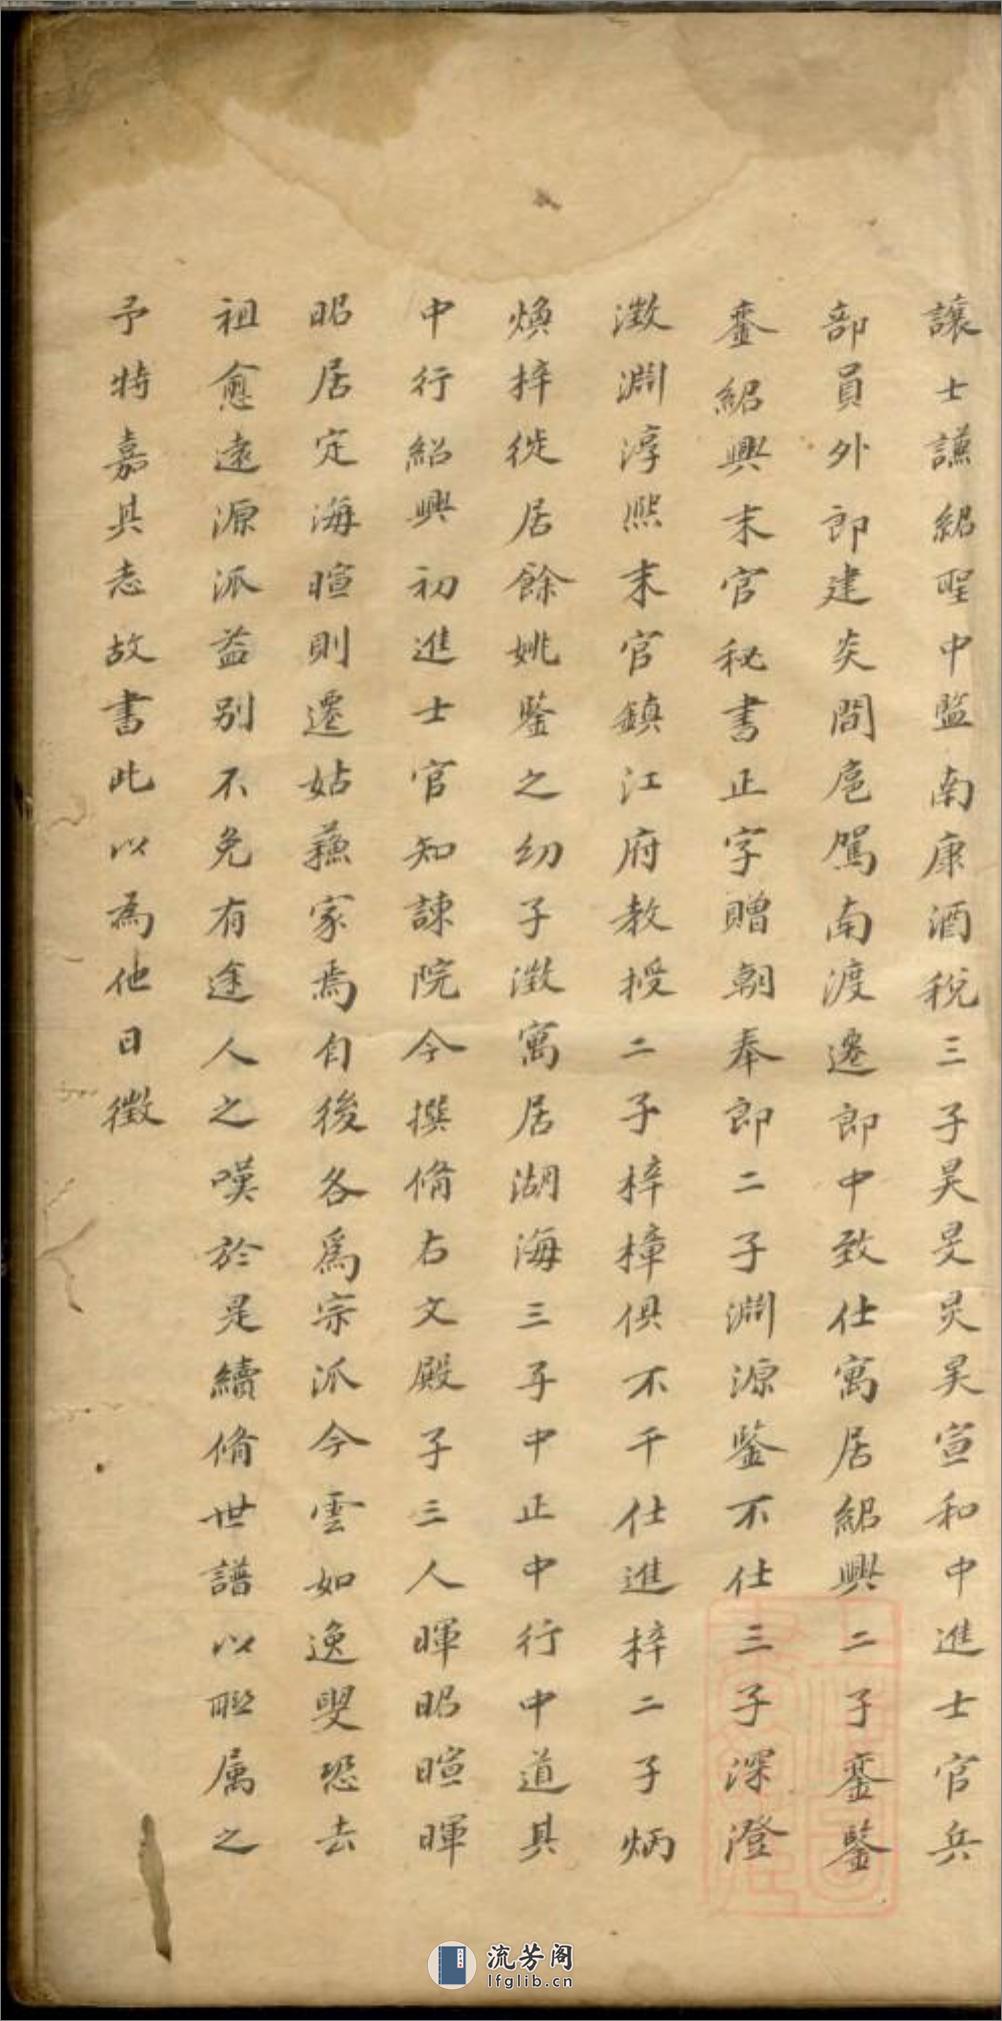 讓士謙紹聖中監南康酒稅三子昊旻炅昊宣和中進士官兵
部員外郎建炎間扈駕南渡遷郎中致仕寓居紹興二子鎏鑒
鎏紹興末官秘書正字贈朝奉郎二子淵源鑒不仕三子深澄
澂淵淳熙末官鎮江府教授二子梓樟俱不干仕進梓二子炳
煥梓徙居餘姚鑒之幼子澂寓居湖海三子中正中行中道其
中行紹興初進士官知諫院今撰脩右文殿子三人暉昭暄暉
昭居定海暄則遷姑蘇家焉自後各爲宗派今雲如逸叟恐去
祖愈遠源派益別不免有途人之嘆於是續脩世譜以聯属之
予特嘉其志故書此以為他日徵
流芳阁
lfglib.cn